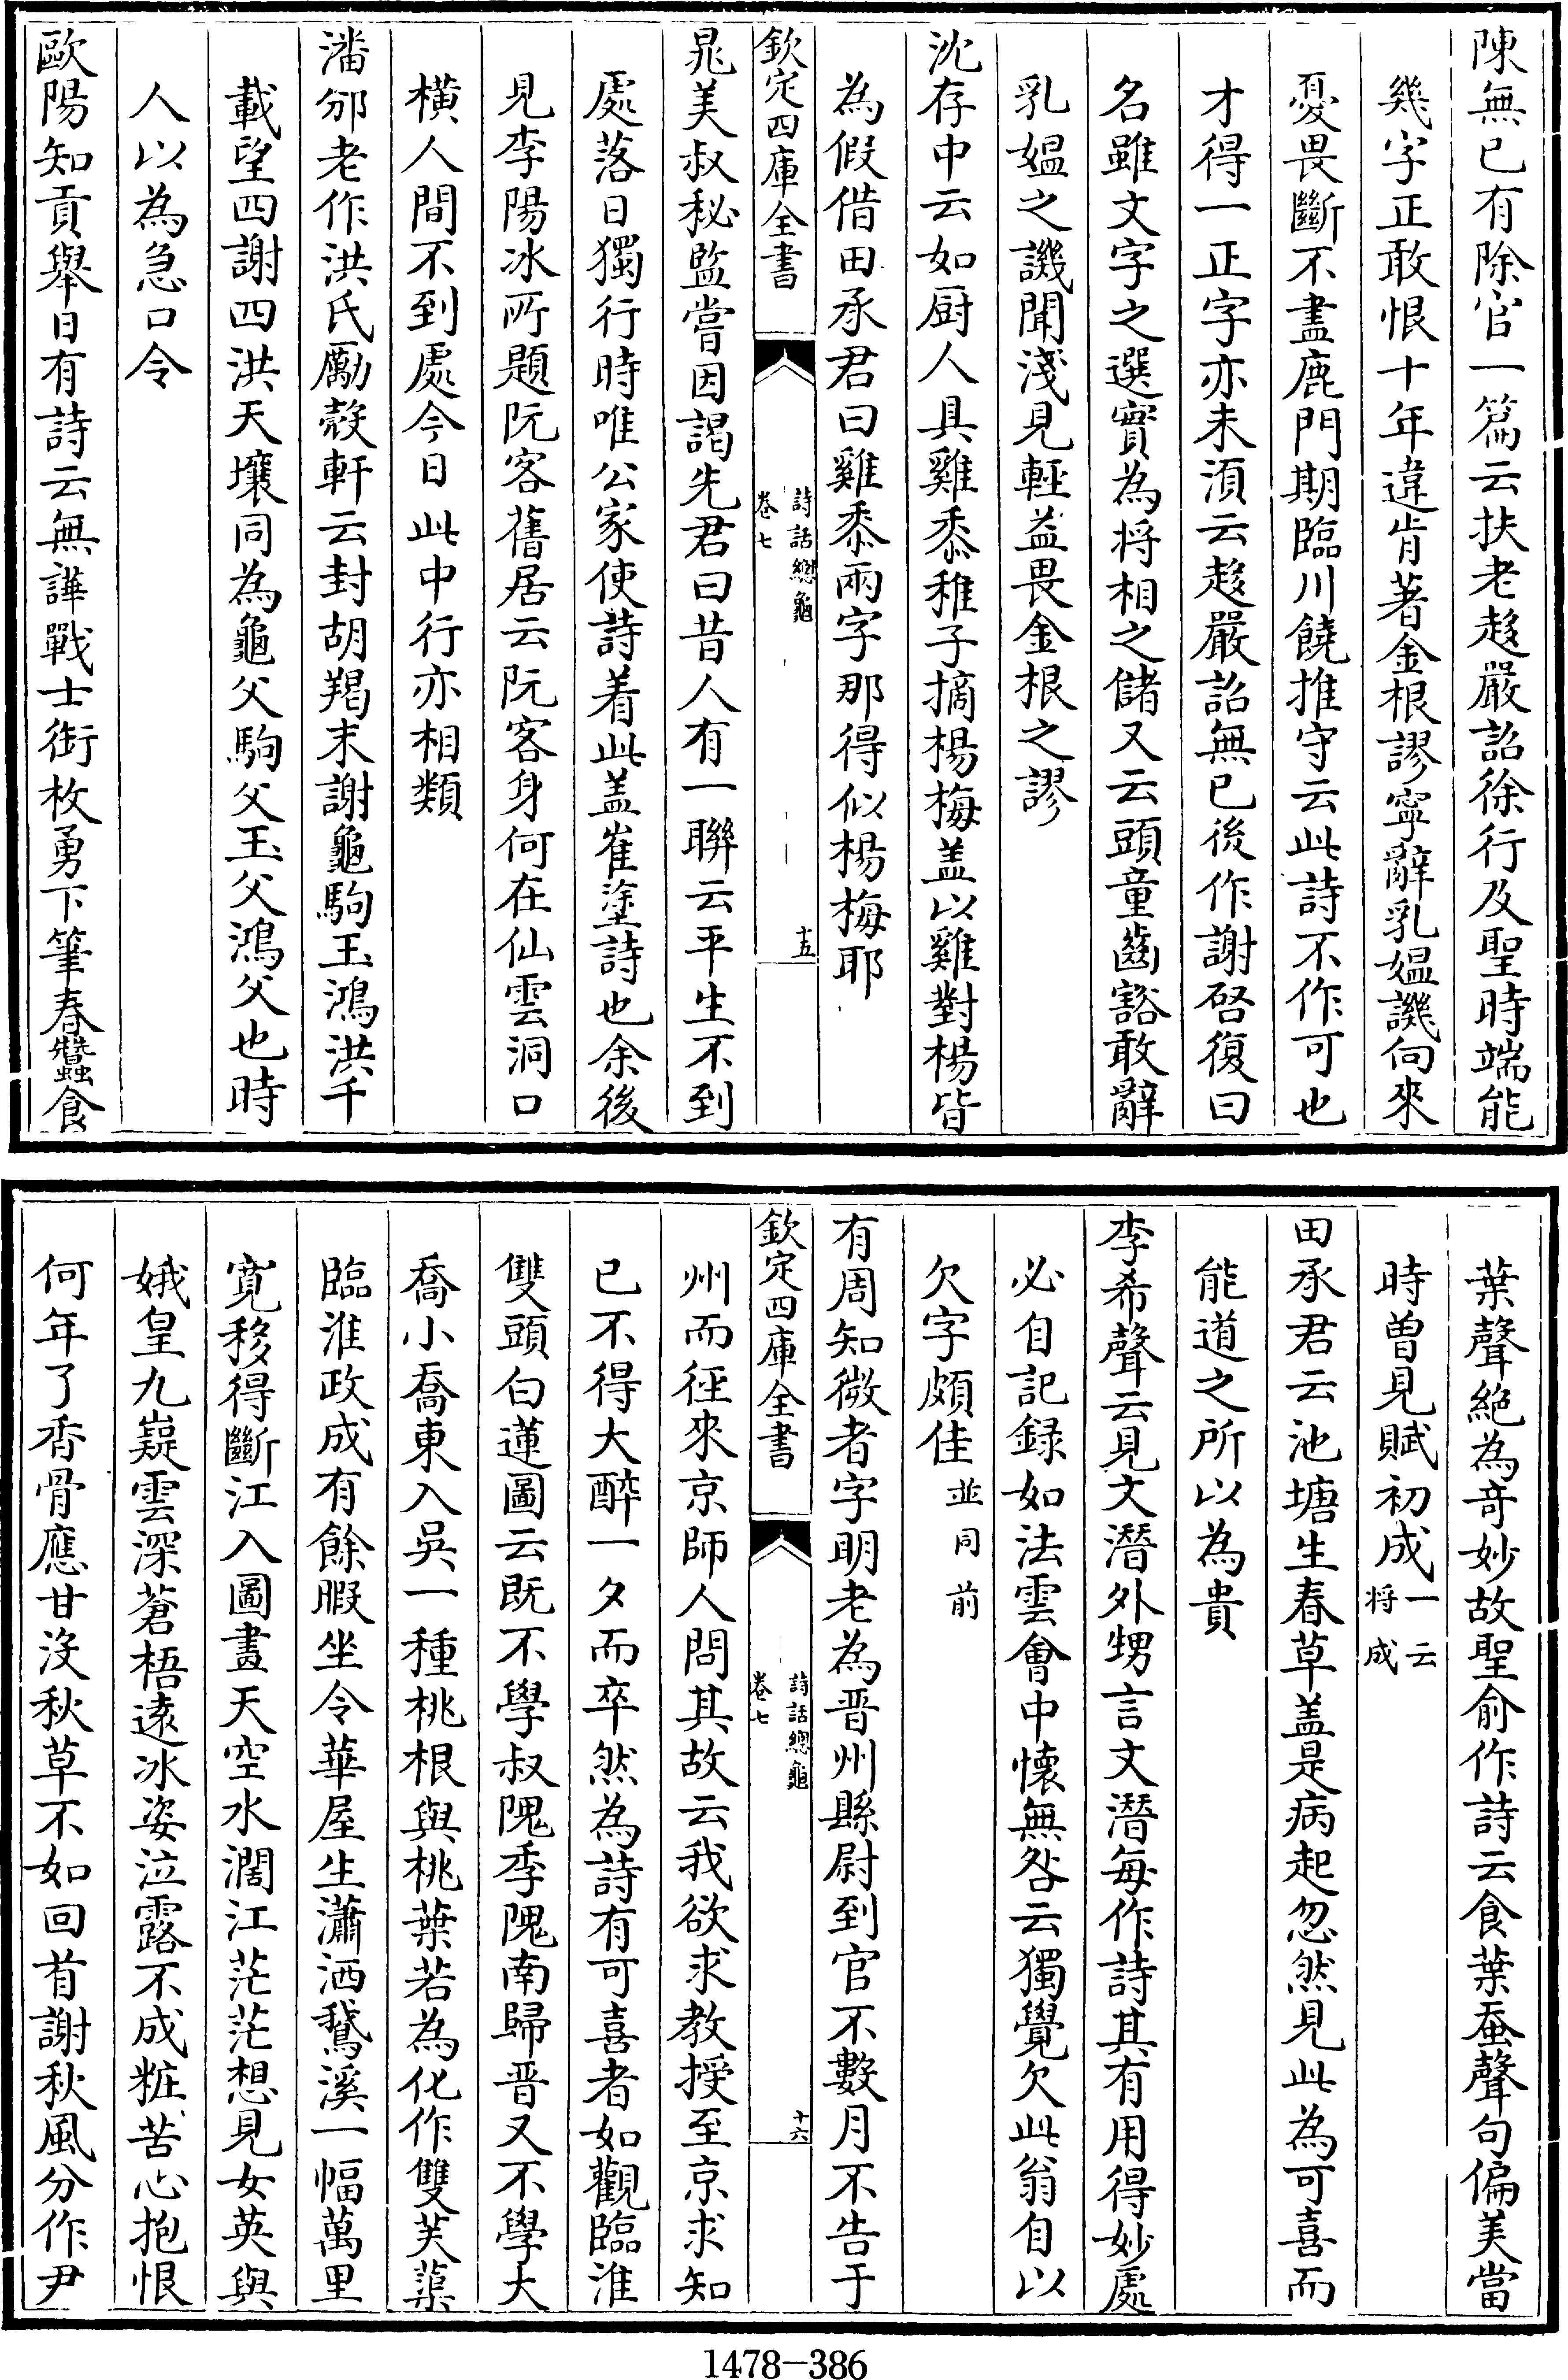 陳無已有除官一篇云扶老趍嚴詔徐行及聖時端能
幾字正敢恨十年違肯著金根謬寧辭乳媪譏向來
憂畏斷不盡鹿門期臨川饒推守云此詩不作可也
才得一正字亦未湏云趍嚴詔無已後作謝啓復曰
名雖文字之選實為将相之儲又云頭童齒豁敢辭
乳媪之譏聞淺見輕益畏金根之謬
沈存中云如厨人具雞黍稚子摘楊梅盖以雞對楊皆
為假借田承君曰雞黍兩字那得似楊梅耶
欽定四庫全書
詩話總龜
卷七
十五
晁美叔秘監嘗因謁先君曰昔人有一聯云平生不到
處落日獨行時唯公家使詩着此盖崔塗詩也余後
見李陽冰所題阮客舊居云阮客身何在仙雲洞口
橫人間不到處今日此中行亦相類
潘邠老作洪氏勵殼軒云封胡羯末謝龜駒玉鴻洪千
載望四謝四洪天壤同為龜父駒父玉父鴻父也時
人以為急口令
歐陽知貢舉日有詩云無譁戰士銜枚勇下筆春蠶食
葉聲絶為奇妙故聖俞作詩云食葉蚕聲句偏美當
時曾見賦初成一云将成
田承君云池塘生春草盖是病起忽然見此為可喜而
能道之所以為貴
李希聲云見文潛外甥言文潛每作詩其有用得妙處
必自記録如法雲會中懷無咎云獨覺欠此翁自以
欠字頗佳並同前
有周知微者字明老為晋州縣尉到官不數月不告于
欽定四庫全書
詩話總龜
卷七
十六
州而徑來京師人問其故云我欲求教授至京求知
已不得大醉一夕而卒然為詩有可喜者如觀臨淮
雙頭白蓮圖云既不學叔隗季隗南歸晋又不學大
喬小喬東入吳一種桃根與桃葉若為化作雙芙蕖
臨淮政成有餘暇坐令華屋生瀟洒鵞溪一幅萬里
寛移得斷江入圖畫天空水濶江茫茫想見女英與
娥皇九嶷雲深蒼梧遠冰姿泣露不成粧苦心抱恨
何年了香骨應甘沒秋草不如回首謝秋風分作尹
1478-386